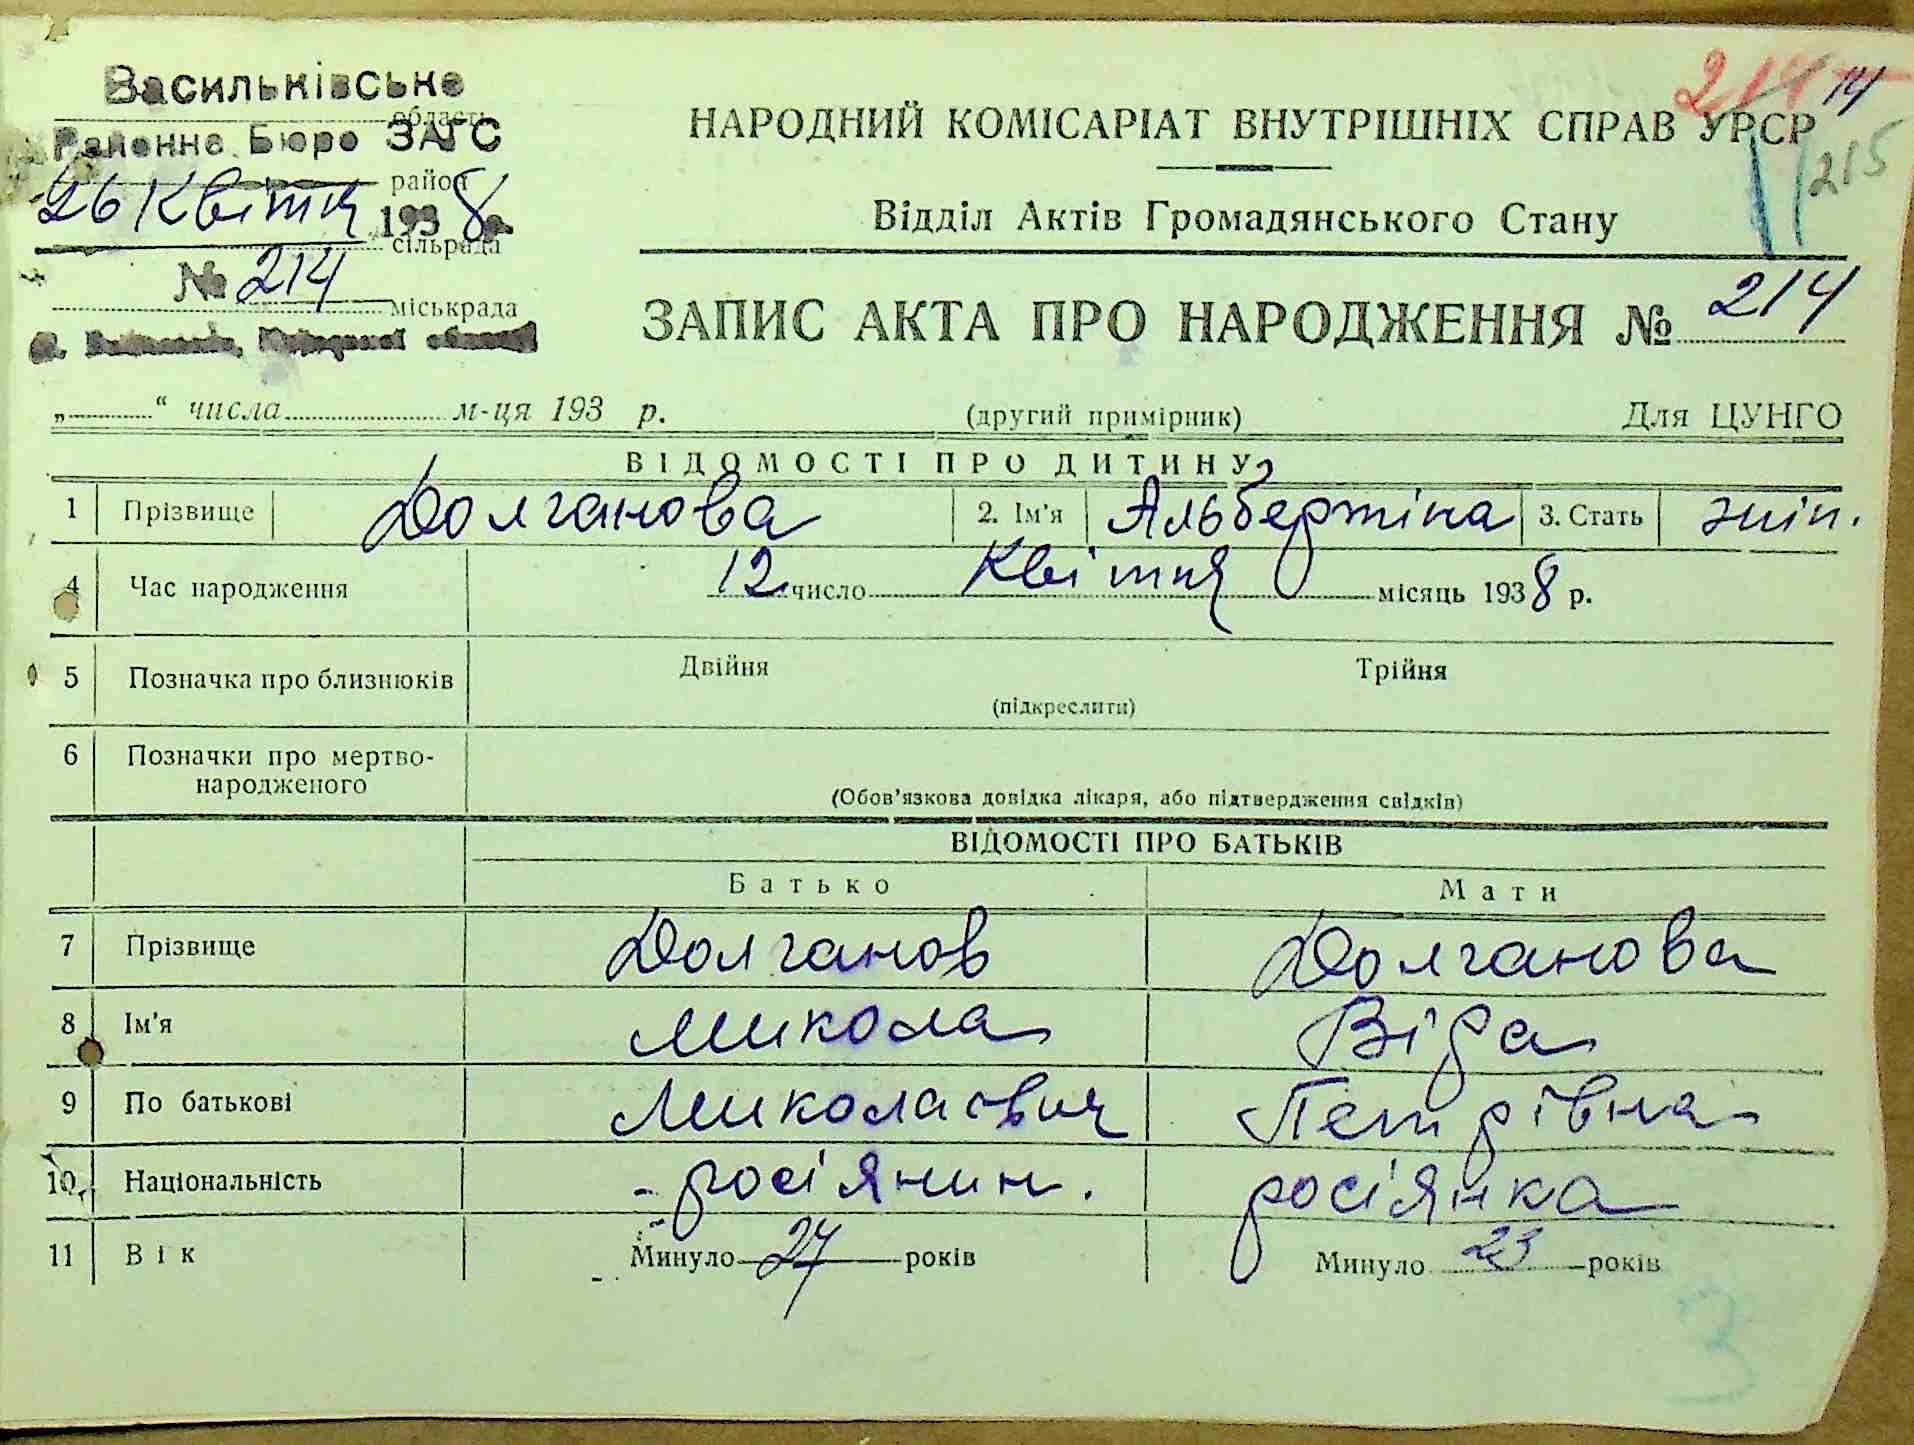 Васильківське
області
Районне Бюро ЗАГС
район
26 Квітня 1938 р.
сільрада
№ 214
міськрада
області
214 14
215
НАРОДНИЙ КОМІСАРІАТ ВНУТРІШНІХ СПРАВ УРСР
Відділ Актів Громадянського Стану
ЗАПИС АКТА ПРО НАРОДЖЕННЯ № 214
„ “ числа м-ця 193 р. (другий примірник) Для ЦУНГО
ВІДОМОСТІ ПРО ДИТИНУ
1 Прізвище Долганова 2. Ім'я Альбертіна 3. Стать жін.
4 Час народження 12 число Квітня місяць 1938 р.
5 Позначка про близнюків Двійня Трійня
(підкреслити)
6 Позначки про мертво-
народженого
(Обов'язкова довідка лікаря, або підтвердження свідків)
ВІДОМОСТІ ПРО БАТЬКІВ
Батько Мати
7 Прізвище Долганов Долганова
8 Ім'я Микола Віра
9 По батькові Миколаєвич Петрівна
10 Національність росіянин. росіянка
11 Вік Минуло 27 років Минуло 23 років
3